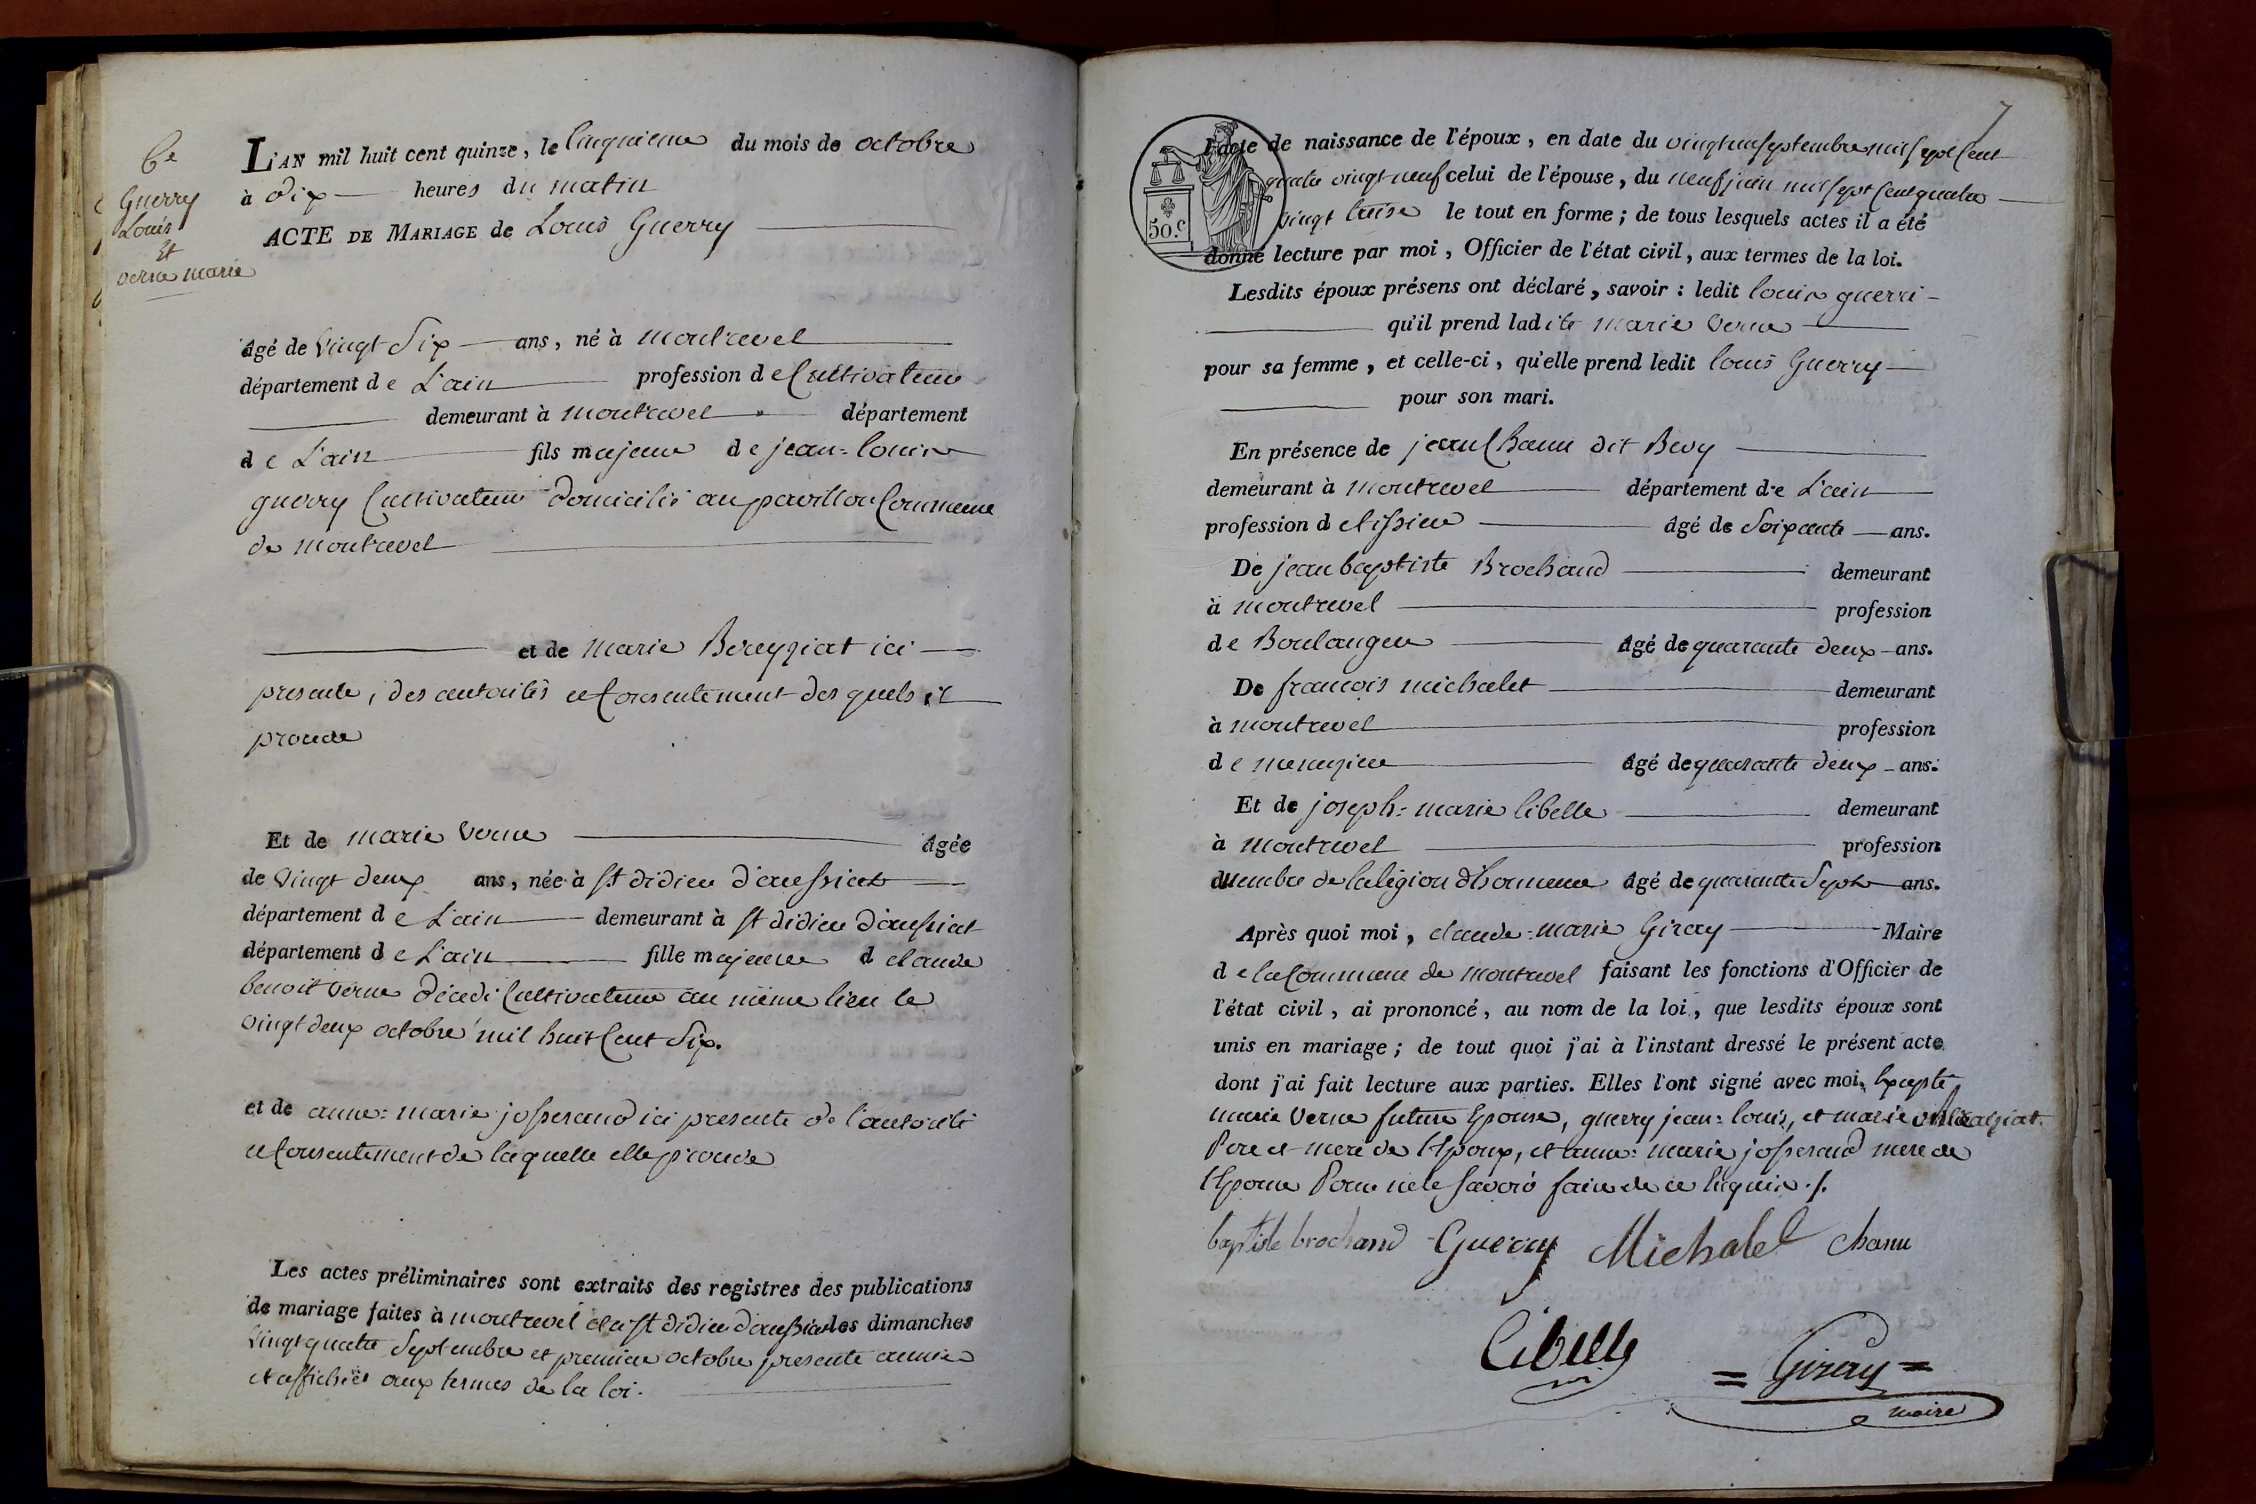 6e
Guerry
Louis
Et
verne marie
L'AN mil huit cent quinze, le Cinquieme du mois de octobre
à dix heures du matin
ACTE DE MARIAGE de Louis Guerry
âgé de vingt Six ans, né à montrevel
département de L'ain profession de Cultivateur
demeurant à montrevel département
de L'ain fils majeur de jean=louis
guerry Cultivateur domicilié au pavillon Commune
de montrevel
et de marie Bereyziat ici
presents, des autorités et Consentement des quels il
procede
Et de marie verne âgée
de vingt deux ans, née à st didier d'aussiat
département de L'ain demeurant à st didier d'aussiat
département de L'ain fille majeure d claude
benoit verne décédé Cultivateur au même lieu le
vingt deux octobre mil huit Cent Six.
et de anne=marie josserand ici presente de l'autorité
et Consentement de laquelle elle procede
Les actes préliminaires sont extraits des registres des publications
de mariage faites à montrevel et a st didier d'aussiat les dimanches
vingt quatre Septembre et premier octobre presente année
et affichés aux termes de la loi.
7
50.c
l'acte de naissance de l'époux, en date du vingt un septembre mil sept Cent
quatre vingt neuf celui de l'épouse, du neuf juin mil sept Cent quatre
vingt treise le tout en forme; de tous lesquels actes il a été
donné lecture par moi, Officier de l'état civil, aux termes de la loi.
Lesdits époux présens ont déclaré, savoir: ledit louis guerri
qu'il prend ladite marie verne
pour sa femme, et celle-ci, qu'elle prend ledit louis Guerry
pour son mari.
En présence de jean Chanu dit Bevy
demeurant à montrevel département de L'ain
profession de tissier âgé de Soixante ans.
De jean baptiste Brochand demeurant
à montrevel profession
de Boulanger âgé de quarante deux ans.
De francois michalet demeurant
à montrevel profession
de menuzier âgé de quarante deux ans.
Et de joseph=marie libelle demeurant
à montrevel profession
de membre de la légion d'honneur âgé de quarante Sept ans.
Après quoi moi, claude=marie Giray Maire
de la Commune de montrevel faisant les fonctions d'Officier de
l'état civil, ai prononcé, au nom de la loi, que lesdits époux sont
unis en mariage; de tout quoi j'ai à l'instant dressé le présent acte
dont j'ai fait lecture aux parties. Elles l'ont signé avec moi, Excepté
marie verne future Epouse, guerry jean=louis, et marie
Pere et mere de l'Epoux, et anne=marie josserand mere de
l'Epouse Pour ne le savoir faire de ce Enquis ./.
baptiste brochand Guerry Michalet chanu
Libelle
= Giray =
maire